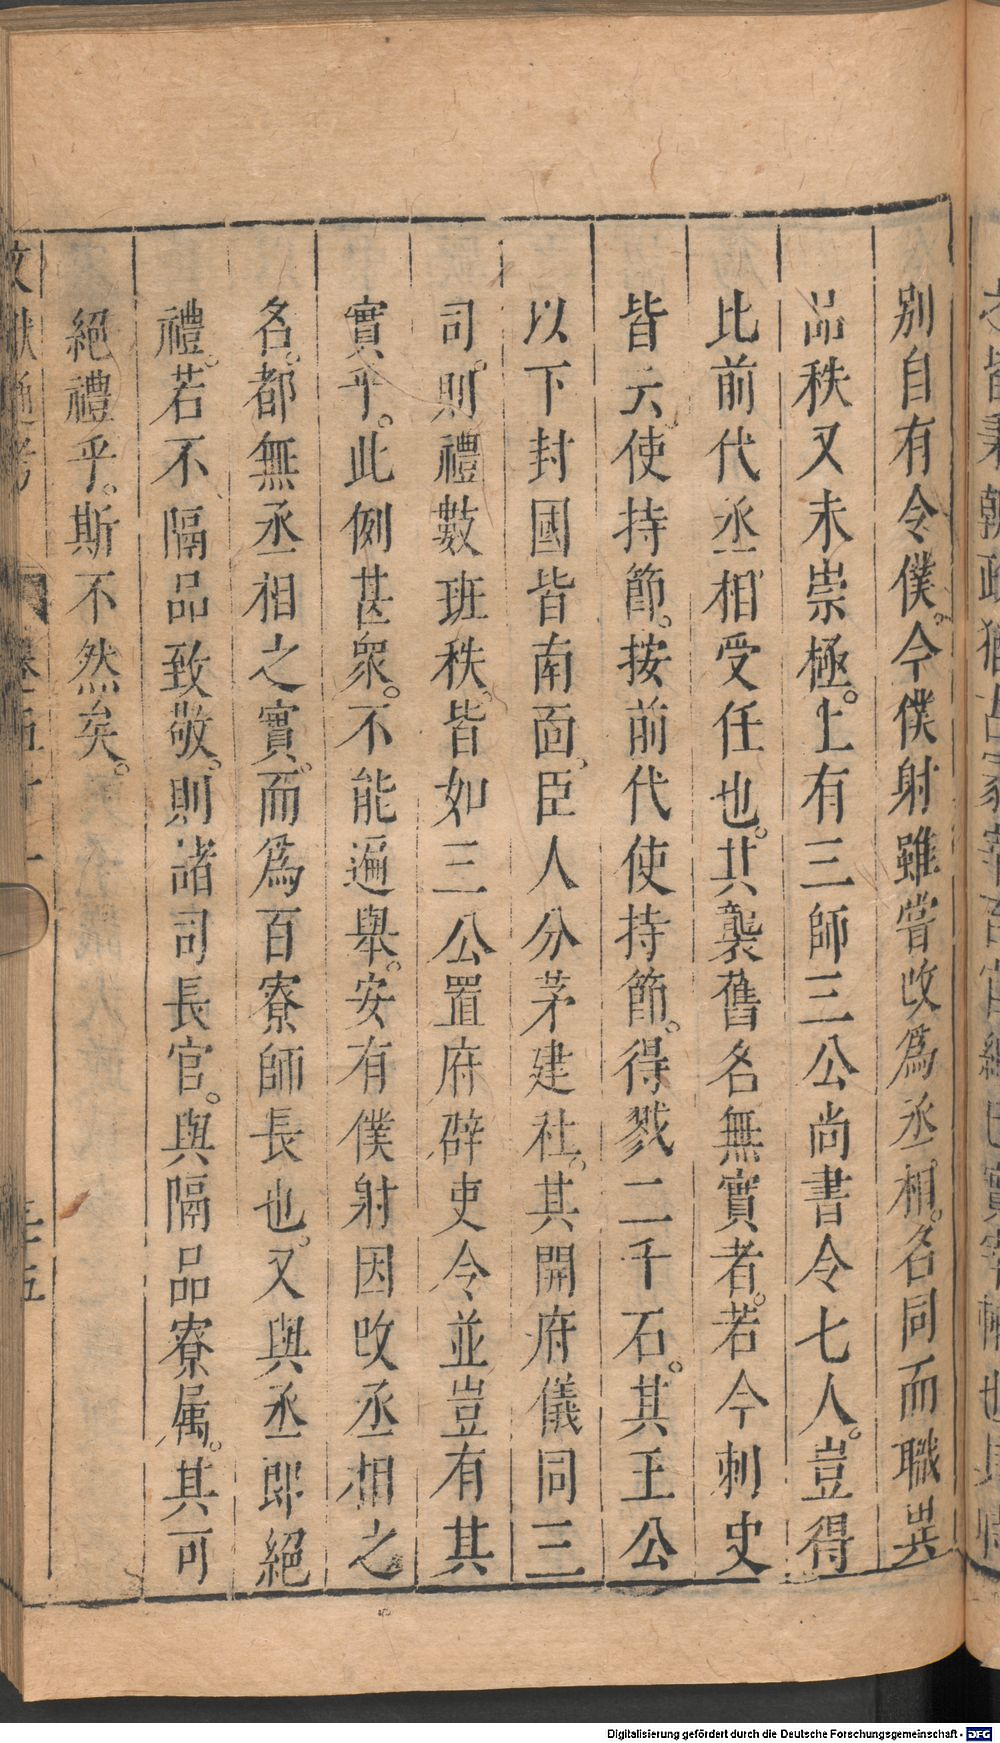 別自有令僕。今僕射雖嘗改爲丞相。名同而職異
品秩又未崇極。上有三師三公尚書令七人。豈得
比前代丞相受任也。其襲舊名無實者。若今刺史
皆云使持節。按前代使持節。得戮二千石。其王公
以下封國皆南面臣人分茅建社。其開府儀同三
司。則禮數班秩。皆如三公置府辟吏令並豈有其
實乎。此例甚衆。不能遍舉。安有僕射因改丞相之
名。都無丞相之實。而爲百寮師長也。又與丞郎絕
禮。若不隔品致敬。則諸司長官。與隔品寮属。其可
絕禮乎。斯不然矣。
文獻通考 卷五十一 三五
Digitalisierung gefördert durch die Deutsche Forschungsgemeinschaft - DFG